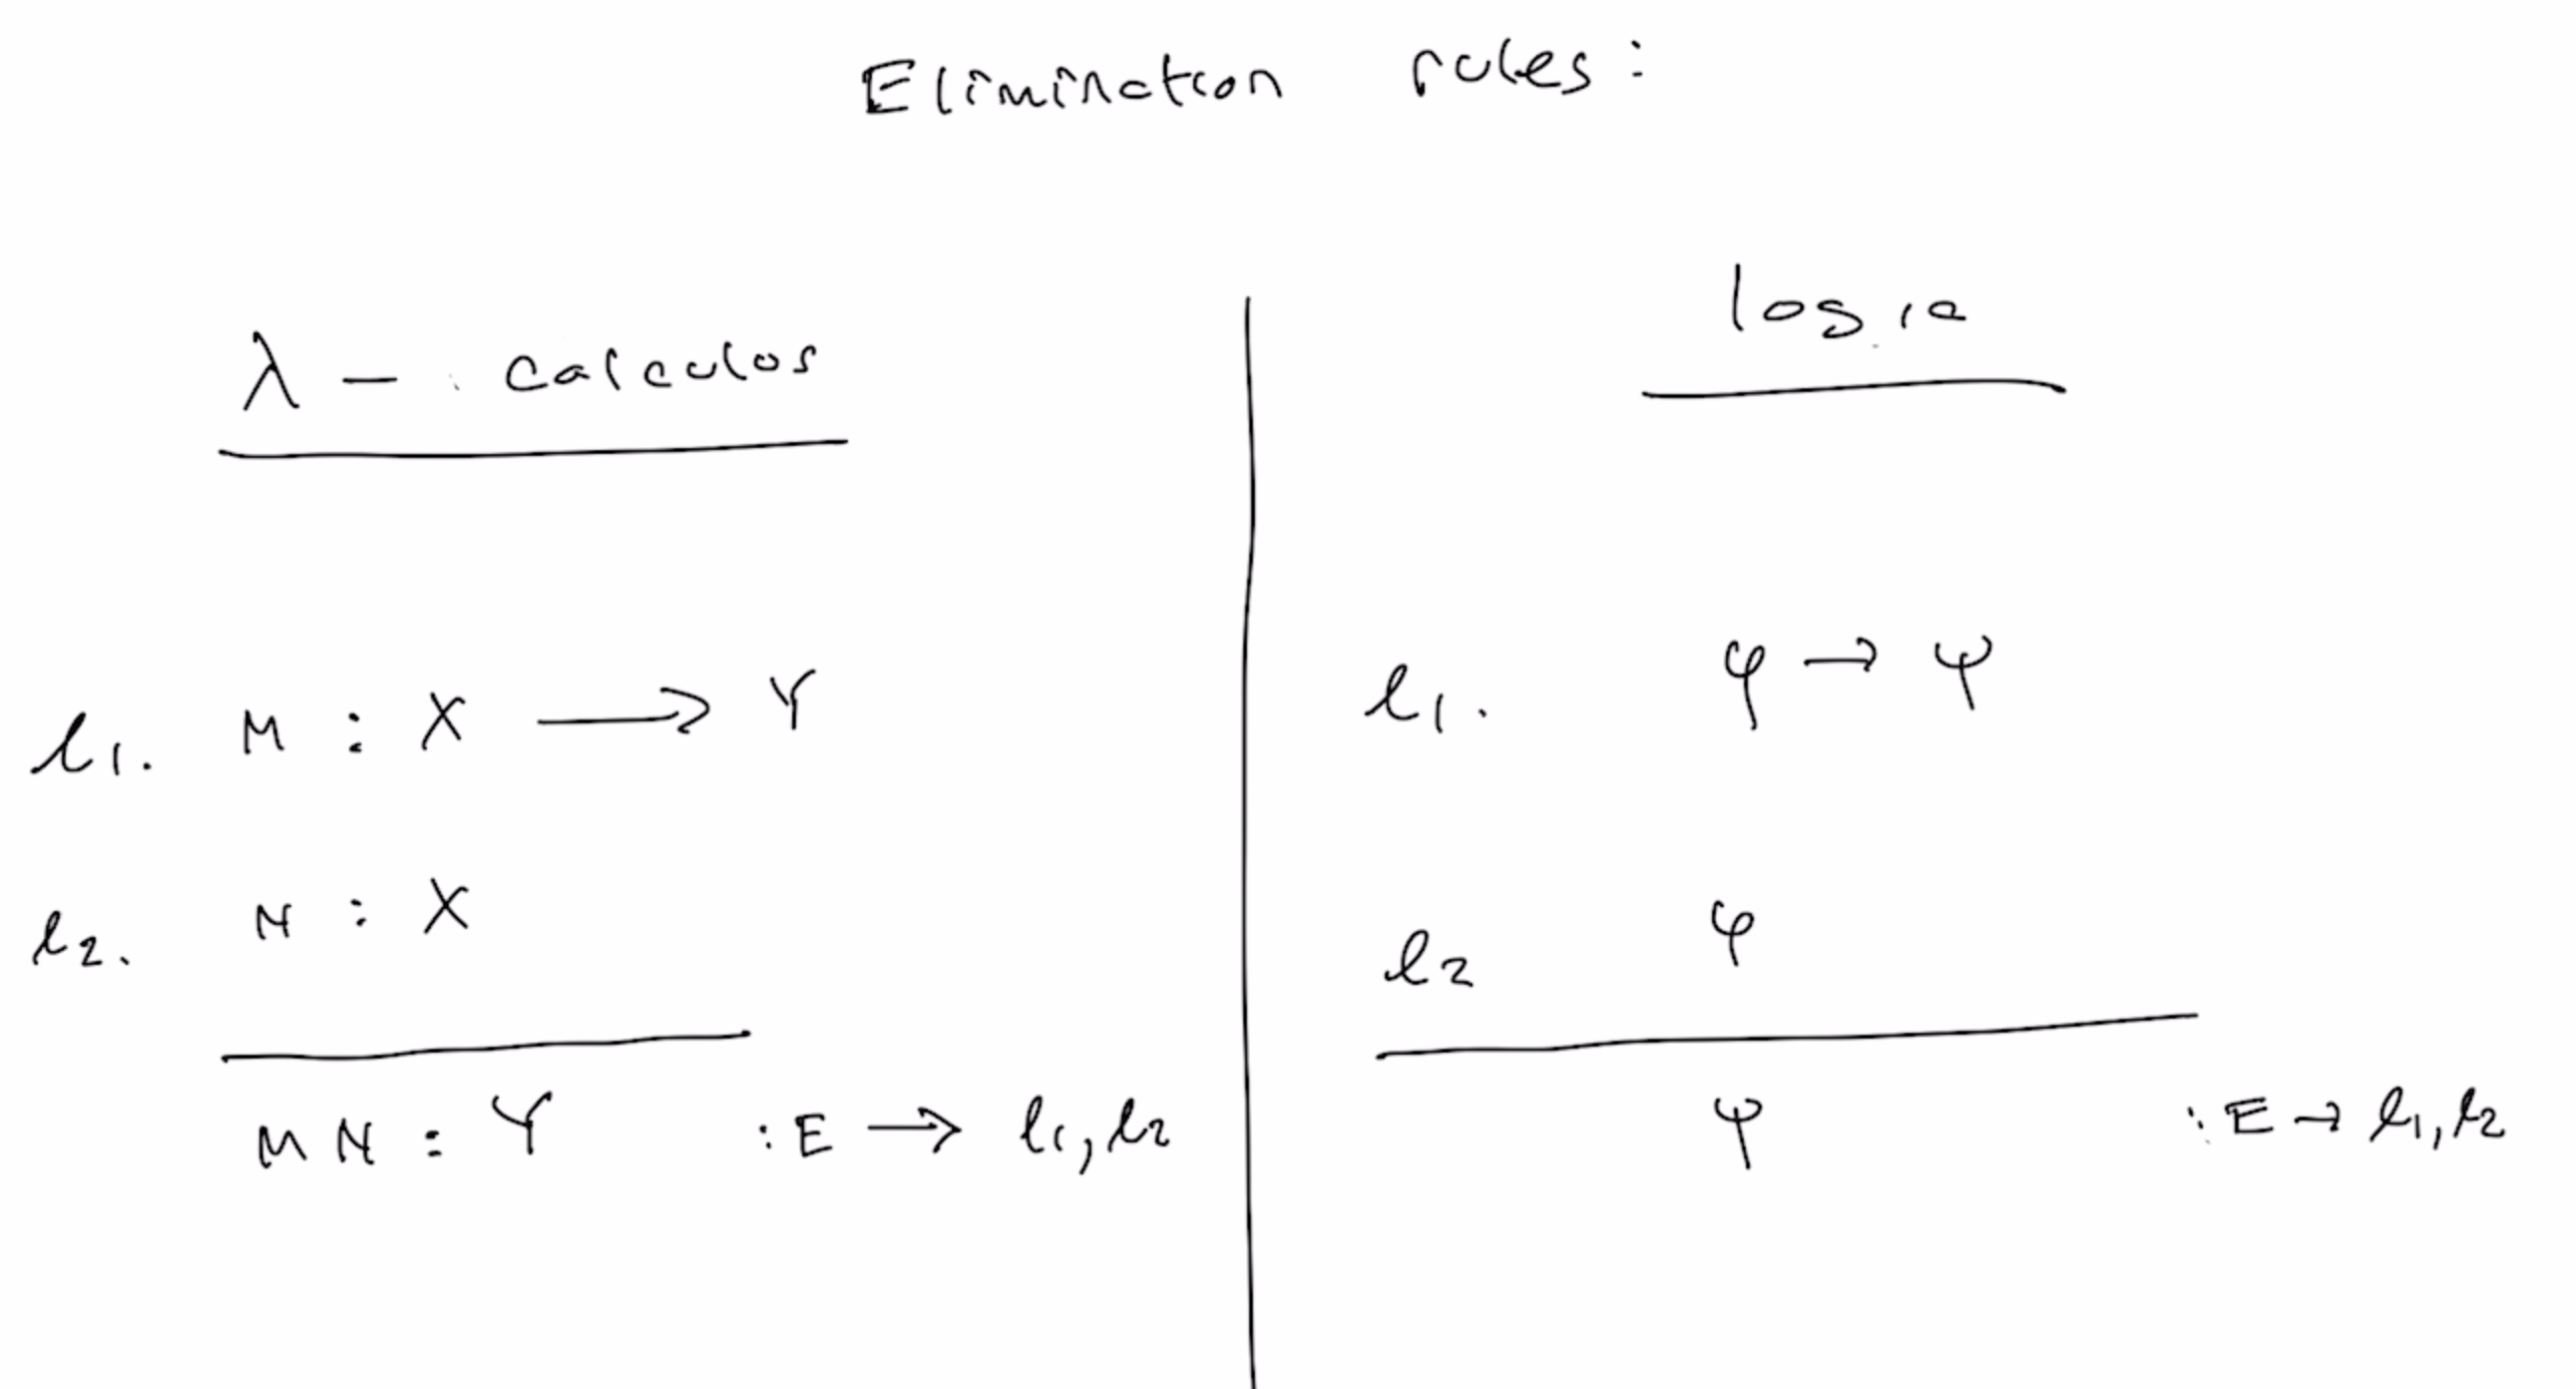 Elimination rules:
λ - calculus
l1. M : X → Y
l2. N : X
MN : Y :E → l1, l2
logic
l1. φ → ψ
l2 φ
ψ :E → l1, l2